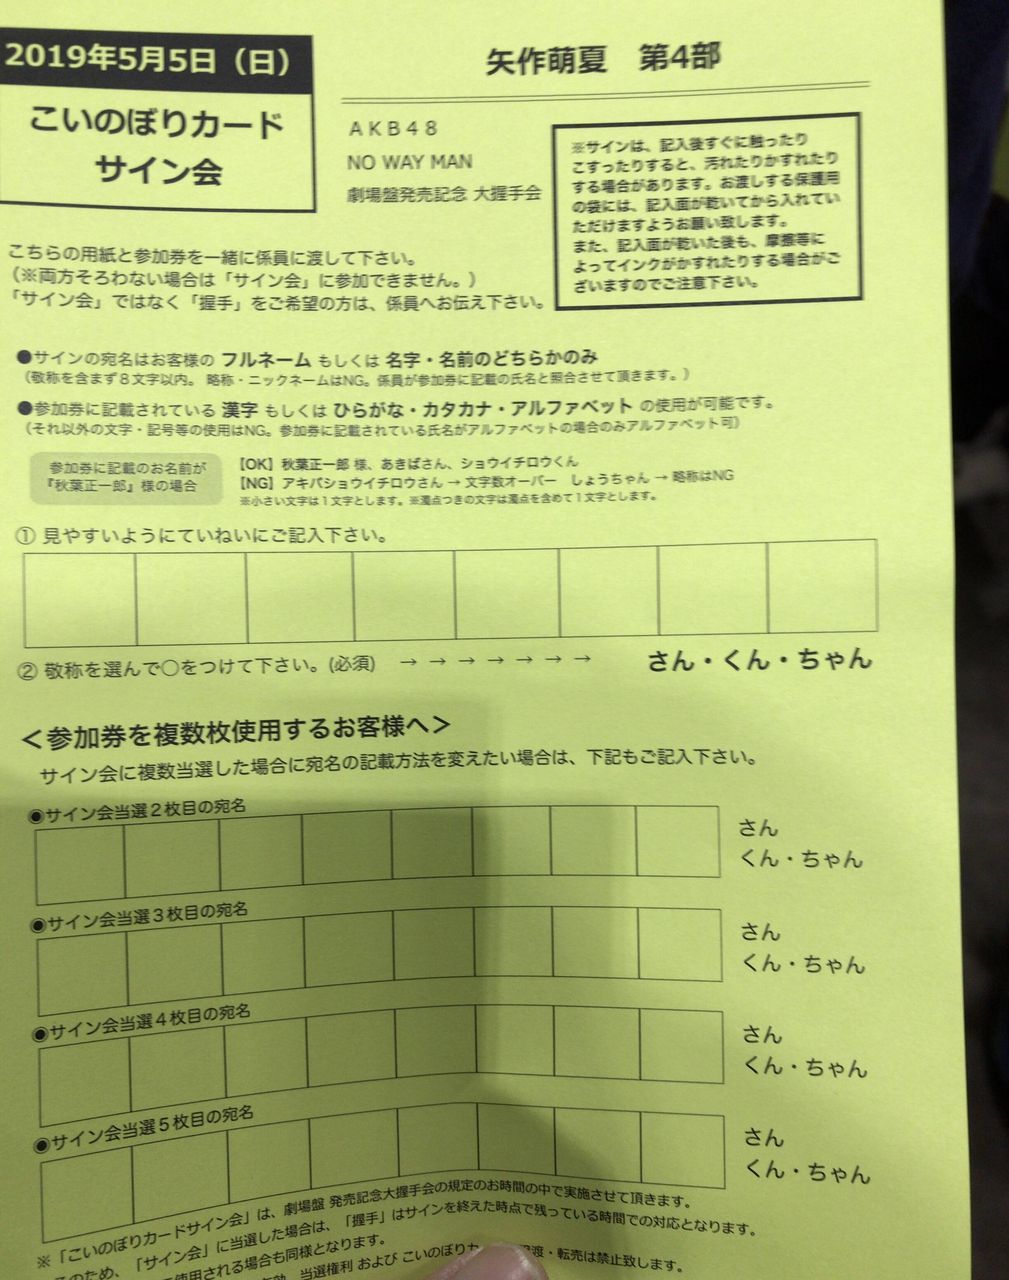 2019年5月5日（日）
こいのぼりカード
サイン会
矢作萌夏　第4部
AKB48
NO WAY MAN
劇場盤発売記念 大握手会
※サインは、記入後すぐに触ったり
こすったりすると、汚れたりかすれたり
する場合があります。お渡しする保護用
の袋には、記入面が乾いてから入れてい
ただけますようお願い致します。
また、記入面が乾いた後も、摩擦等に
よってインクがかすれたりする場合がご
ざいますのでご注意下さい。
こちらの用紙と参加券を一緒に係員に渡して下さい。
（※両方そろわない場合は「サイン会」に参加できません。）
「サイン会」ではなく「握手」をご希望の方は、係員へお伝え下さい。
●サインの宛名はお客様の フルネーム もしくは 名字・名前のどちらかのみ
（敬称を含まず８文字以内。 略称・ニックネームはNG。係員が参加券に記載の氏名と照合させて頂きます。）
●参加券に記載されている 漢字 もしくは ひらがな・カタカナ・アルファベット の使用が可能です。
（それ以外の文字・記号等の使用はNG。参加券に記載されている氏名がアルファベットの場合のみアルファベット可）
参加券に記載のお名前が
『秋葉正一郎』様の場合
【OK】秋葉正一郎 様、あきばさん、ショウイチロウくん
【NG】アキバショウイチロウさん → 文字数オーバー　しょうちゃん → 略称はNG
※小さい文字は１文字とします。※濁点つきの文字は濁点を含めて１文字とします。
① 見やすいようにていねいにご記入下さい。
② 敬称を選んで○をつけて下さい。(必須)　→ → → → → → →　さん・くん・ちゃん
＜参加券を複数枚使用するお客様へ＞
サイン会に複数当選した場合に宛名の記載方法を変えたい場合は、下記もご記入下さい。
◉サイン会当選２枚目の宛名
さん
くん・ちゃん
◉サイン会当選３枚目の宛名
さん
くん・ちゃん
◉サイン会当選４枚目の宛名
さん
くん・ちゃん
◉サイン会当選５枚目の宛名
さん
くん・ちゃん
※「こいのぼりカードサイン会」は、劇場盤 発売記念大握手会の規定のお時間の中で実施させて頂きます。
このため、「サイン会」に当選した場合は、「握手」はサインを終えた時点で残っている時間での対応となります。
使用される場合も同様となります。
当選権利 および こいのぼりカ 渡・転売は禁止致します。